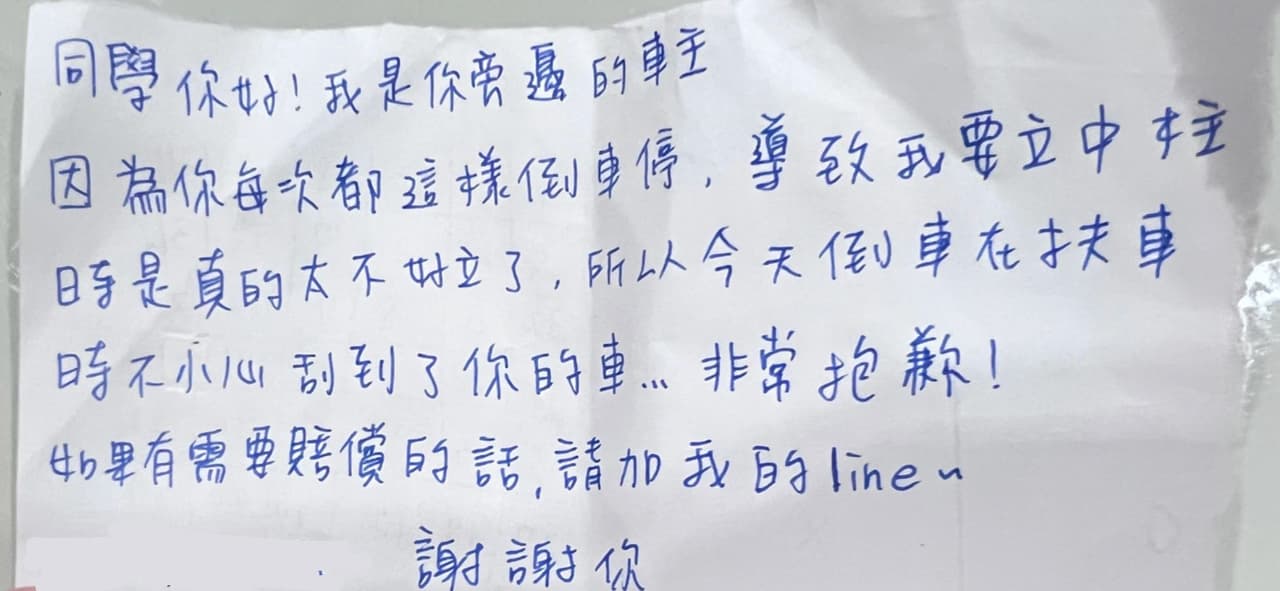 同學你好!我是你旁邊的車主
因為你每次都這樣倒車停,導致我要立中柱
時是真的太不好立了,所以今天倒車在扶車
時不小心刮到了你的車...非常抱歉!
如果有需要賠償的話,請加我的line~
謝謝你